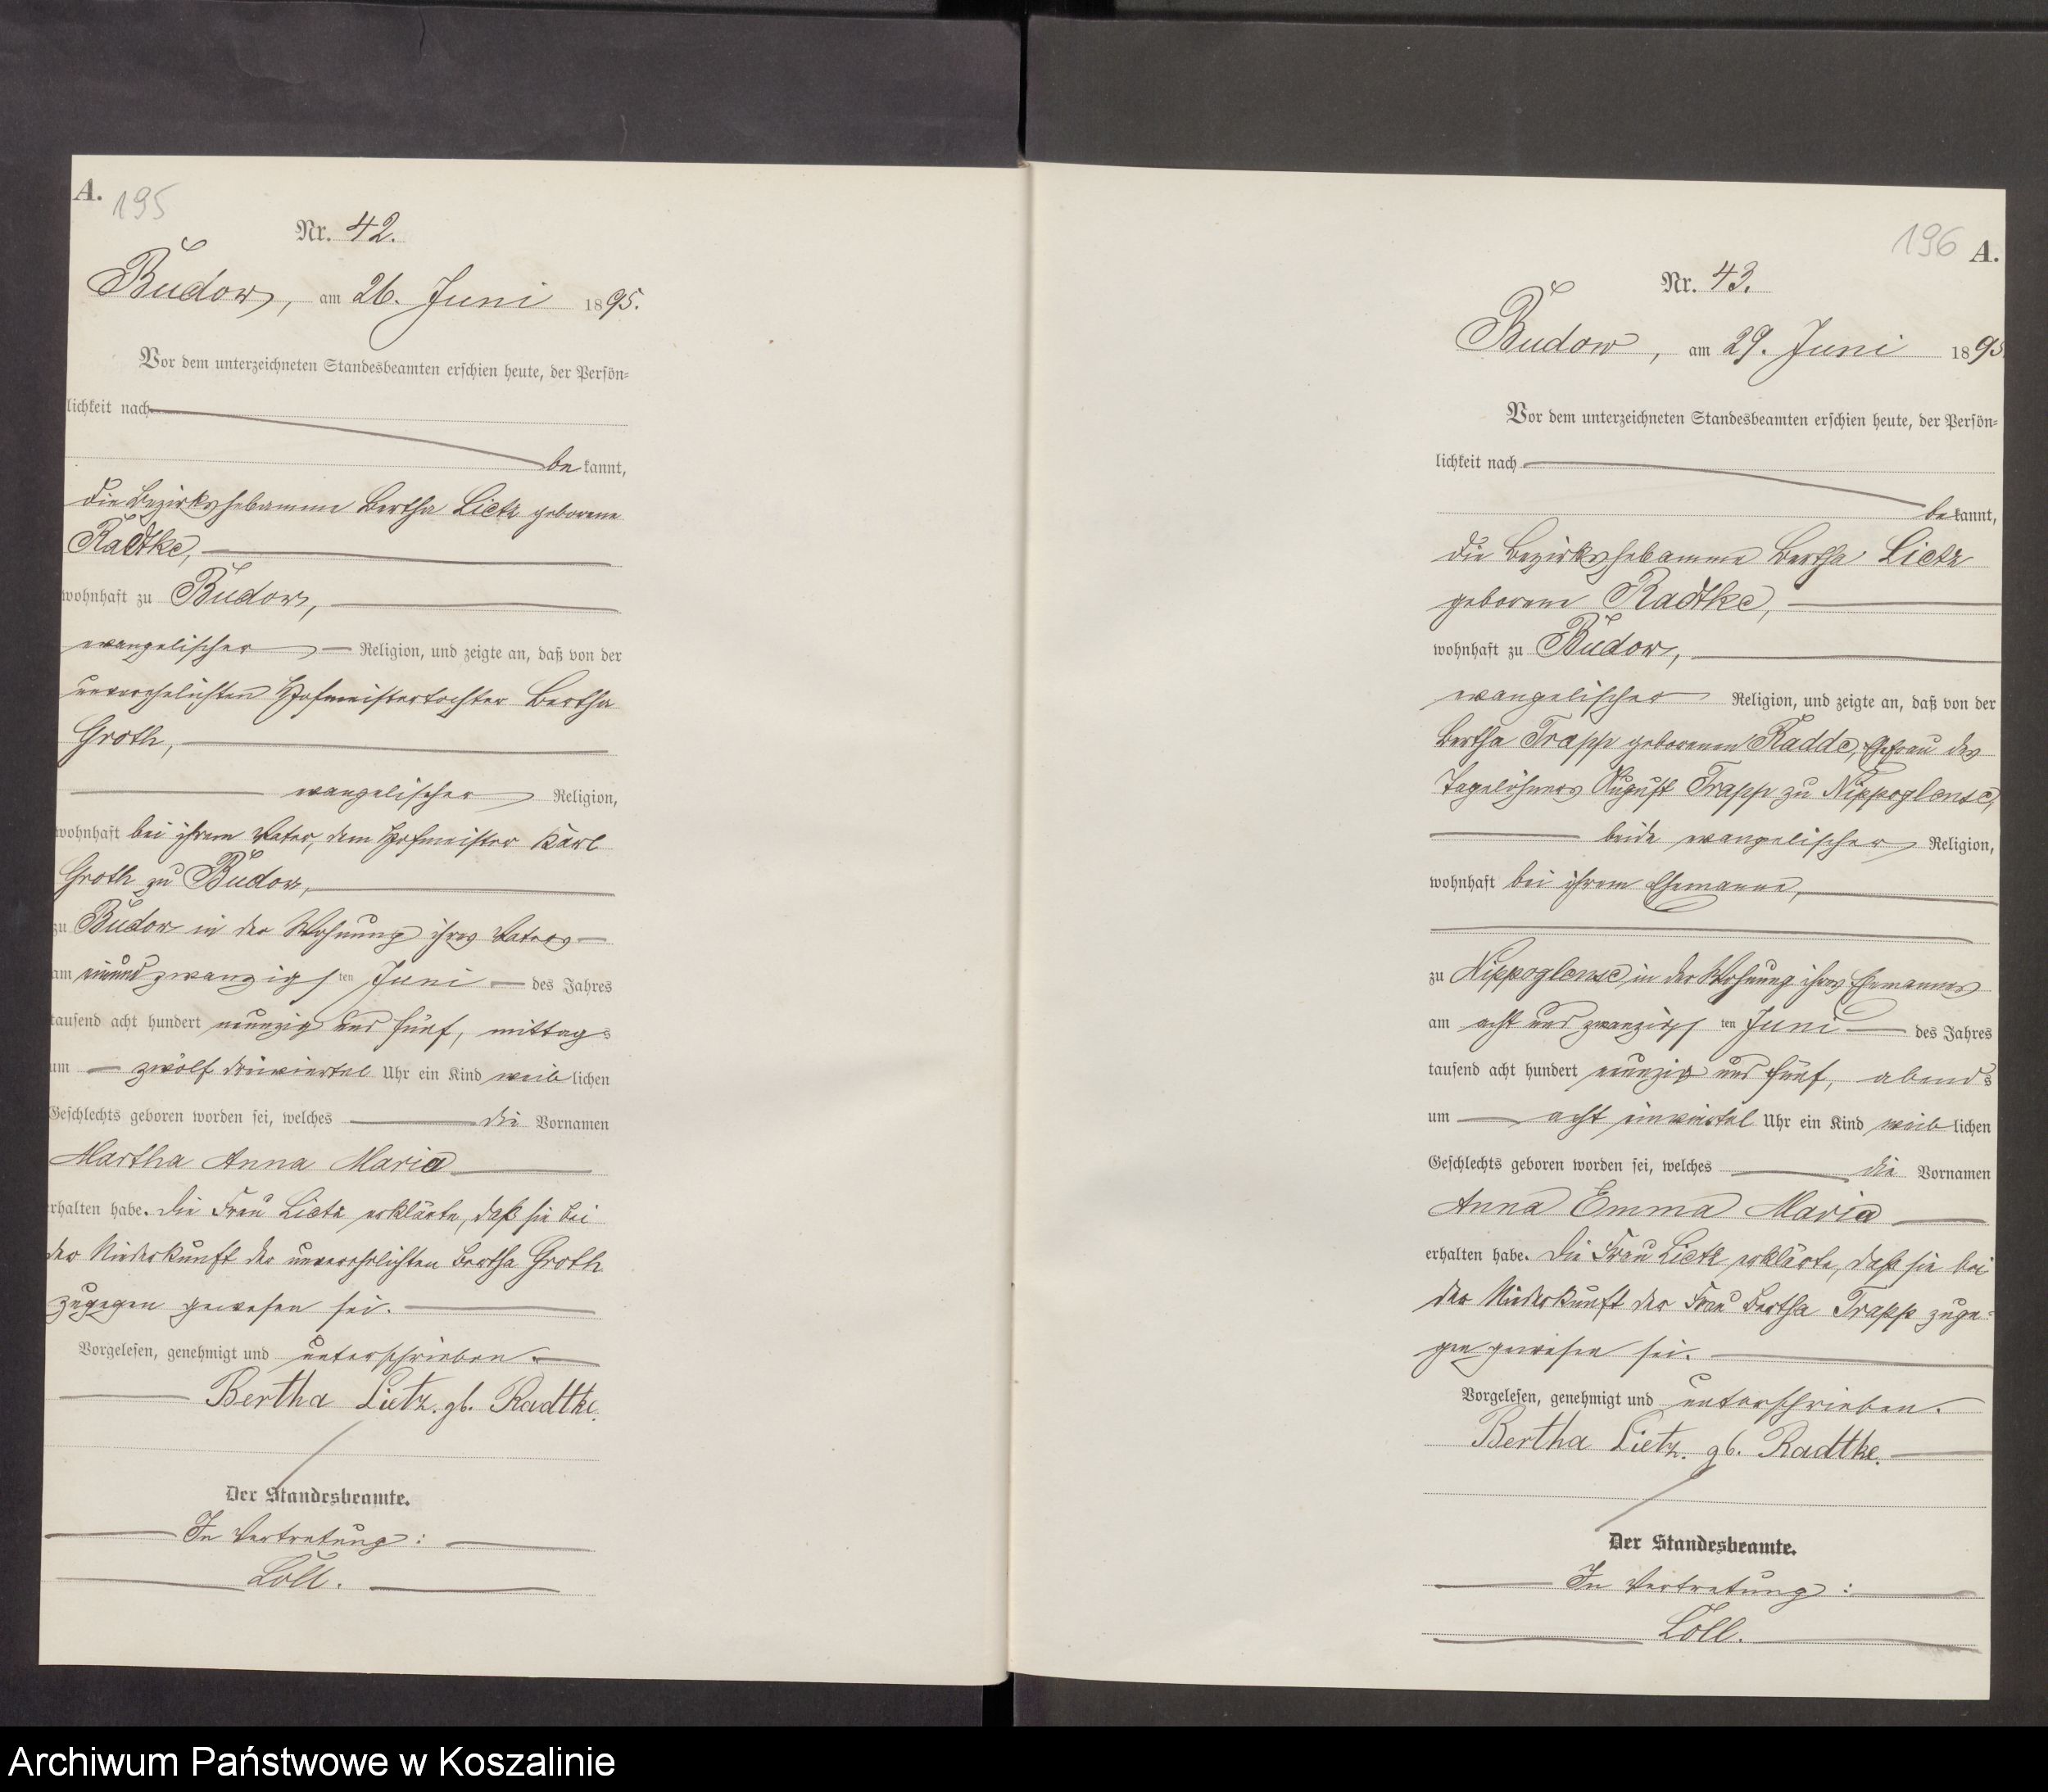 A. 195
Nr. 42.
Budow, am 26. Juni 1895.
Vor dem unterzeichneten Standesbeamten erschien heute, der Persön=
lichkeit nach
bekannt,
die Bezirkshebamme Bertha Lietz geborene
Radtke,
wohnhaft zu Budow,
evangelischer Religion, und zeigte an, daß von der
unverehelichten Hofmeistertochter Bertha
Groth,
evangelischer Religion,
wohnhaft bei ihrem Vater, dem Hofmeister Karl
Groth zu Budow,
zu Budow in der Wohnung ihres Vaters
am einundzwanzigsten Juni des Jahres
tausend acht hundert neunzig und fünf, mittags
um zwölf dreiviertel Uhr ein Kind weiblichen
Geschlechts geboren worden sei, welches die Vornamen
Martha Anna Maria
erhalten habe. Die Frau Lietz erklärte, daß sie bei
der Niederkunft der unverehelichten Bertha Groth
zugegen gewesen sei.
Vorgelesen, genehmigt und unterschrieben.
Bertha Lietz. gb. Radtke.
Der Standesbeamte.
In Vertretung:
Löll.
196 A.
Nr. 43.
Budow, am 29. Juni 1895
Vor dem unterzeichneten Standesbeamten erschien heute, der Persön=
lichkeit nach
bekannt,
die Bezirkshebamme Bertha Lietz
geborene Radtke,
wohnhaft zu Budow,
evangelischer Religion, und zeigte an, daß von der
Bertha Trapp geborenen Radde, Ehefrau des
Tagelöhners August Trapp zu Nippoglense,
beide evangelischer Religion,
wohnhaft bei ihrem Ehemanne,
zu Nippoglense in der Wohnung ihres Ehemannes
am acht und zwanzigsten Juni des Jahres
tausend acht hundert neunzig und fünf, abends
um acht einviertel Uhr ein Kind weiblichen
Geschlechts geboren worden sei, welches die Vornamen
Anna Emma Maria
erhalten habe. Die Frau Lietz erklärte, daß sie bei
der Niederkunft der Frau Bertha Trapp zuge=
gen gewesen sei.
Vorgelesen, genehmigt und unterschrieben.
Bertha Lietz. gb. Radtke.
Der Standesbeamte.
In Vertretung:
Löll.
Archiwum Państwowe w Koszalinie